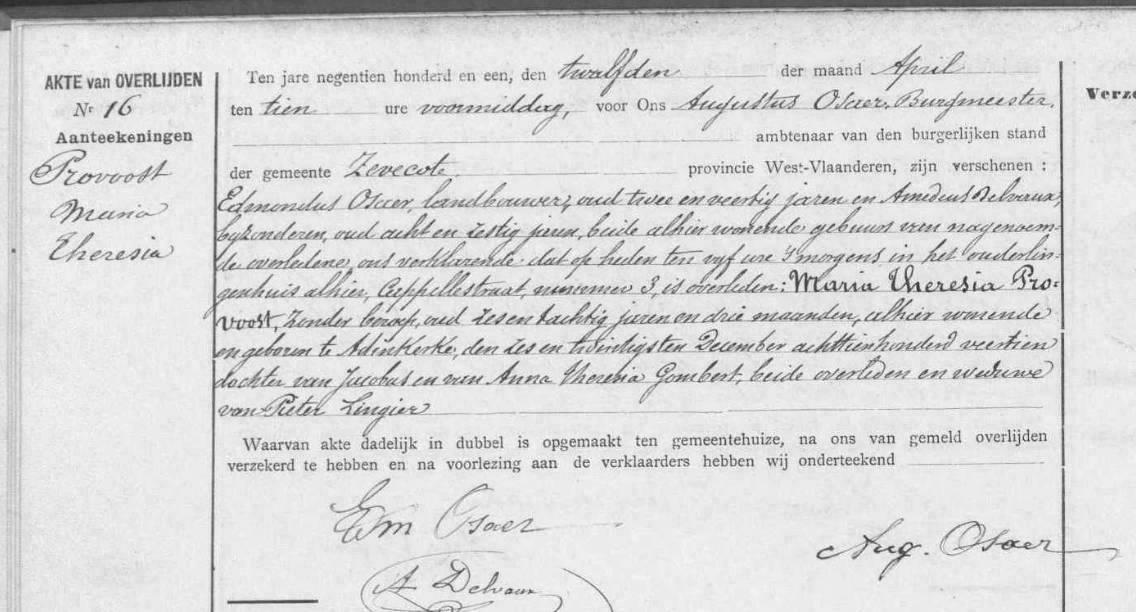 AKTE van OVERLIJDEN
Nr 16
Aanteekeningen
Provoost
Maria
Theresia
Ten jare negentien honderd en een, den twalfden der maand April
ten tien ure voormiddag, voor Ons Augustus Osaer, Burgmeester,
ambtenaar van den burgerlijken stand
der gemeente Zevecote provincie West-Vlaanderen, zijn verschenen :
Edmondus Osaer, landbouwer, oud twee en veertig jaren en Amedeus Delvaux,
byzonderen, oud acht en zestig jaren, beide alhier wonende gebuurs van nagenoem-
de overledene, ons verklarende dat op heden ten vyf ure 's morgens in het ouderlin-
genhuis alhier, Cappellestraat, nummer 3, is overleden: Maria Theresia Pro-
voost, zonder beroep, oud zes en tachtig jaren en drie maanden, alhier wonende
en geboren te Adinkerke, den zes en twintigsten December achttienhonderd veertien
dochter van Jacobus en van Anna Theresia Gombert, beide overleden en weduwe
van Pieter Lingier
Waarvan akte dadelijk in dubbel is opgemaakt ten gemeentehuize, na ons van gemeld overlijden
verzekerd te hebben en na voorlezing aan de verklaarders hebben wij onderteekend
Em Osaer
Aug. Osaer
A Delvaux
Verze